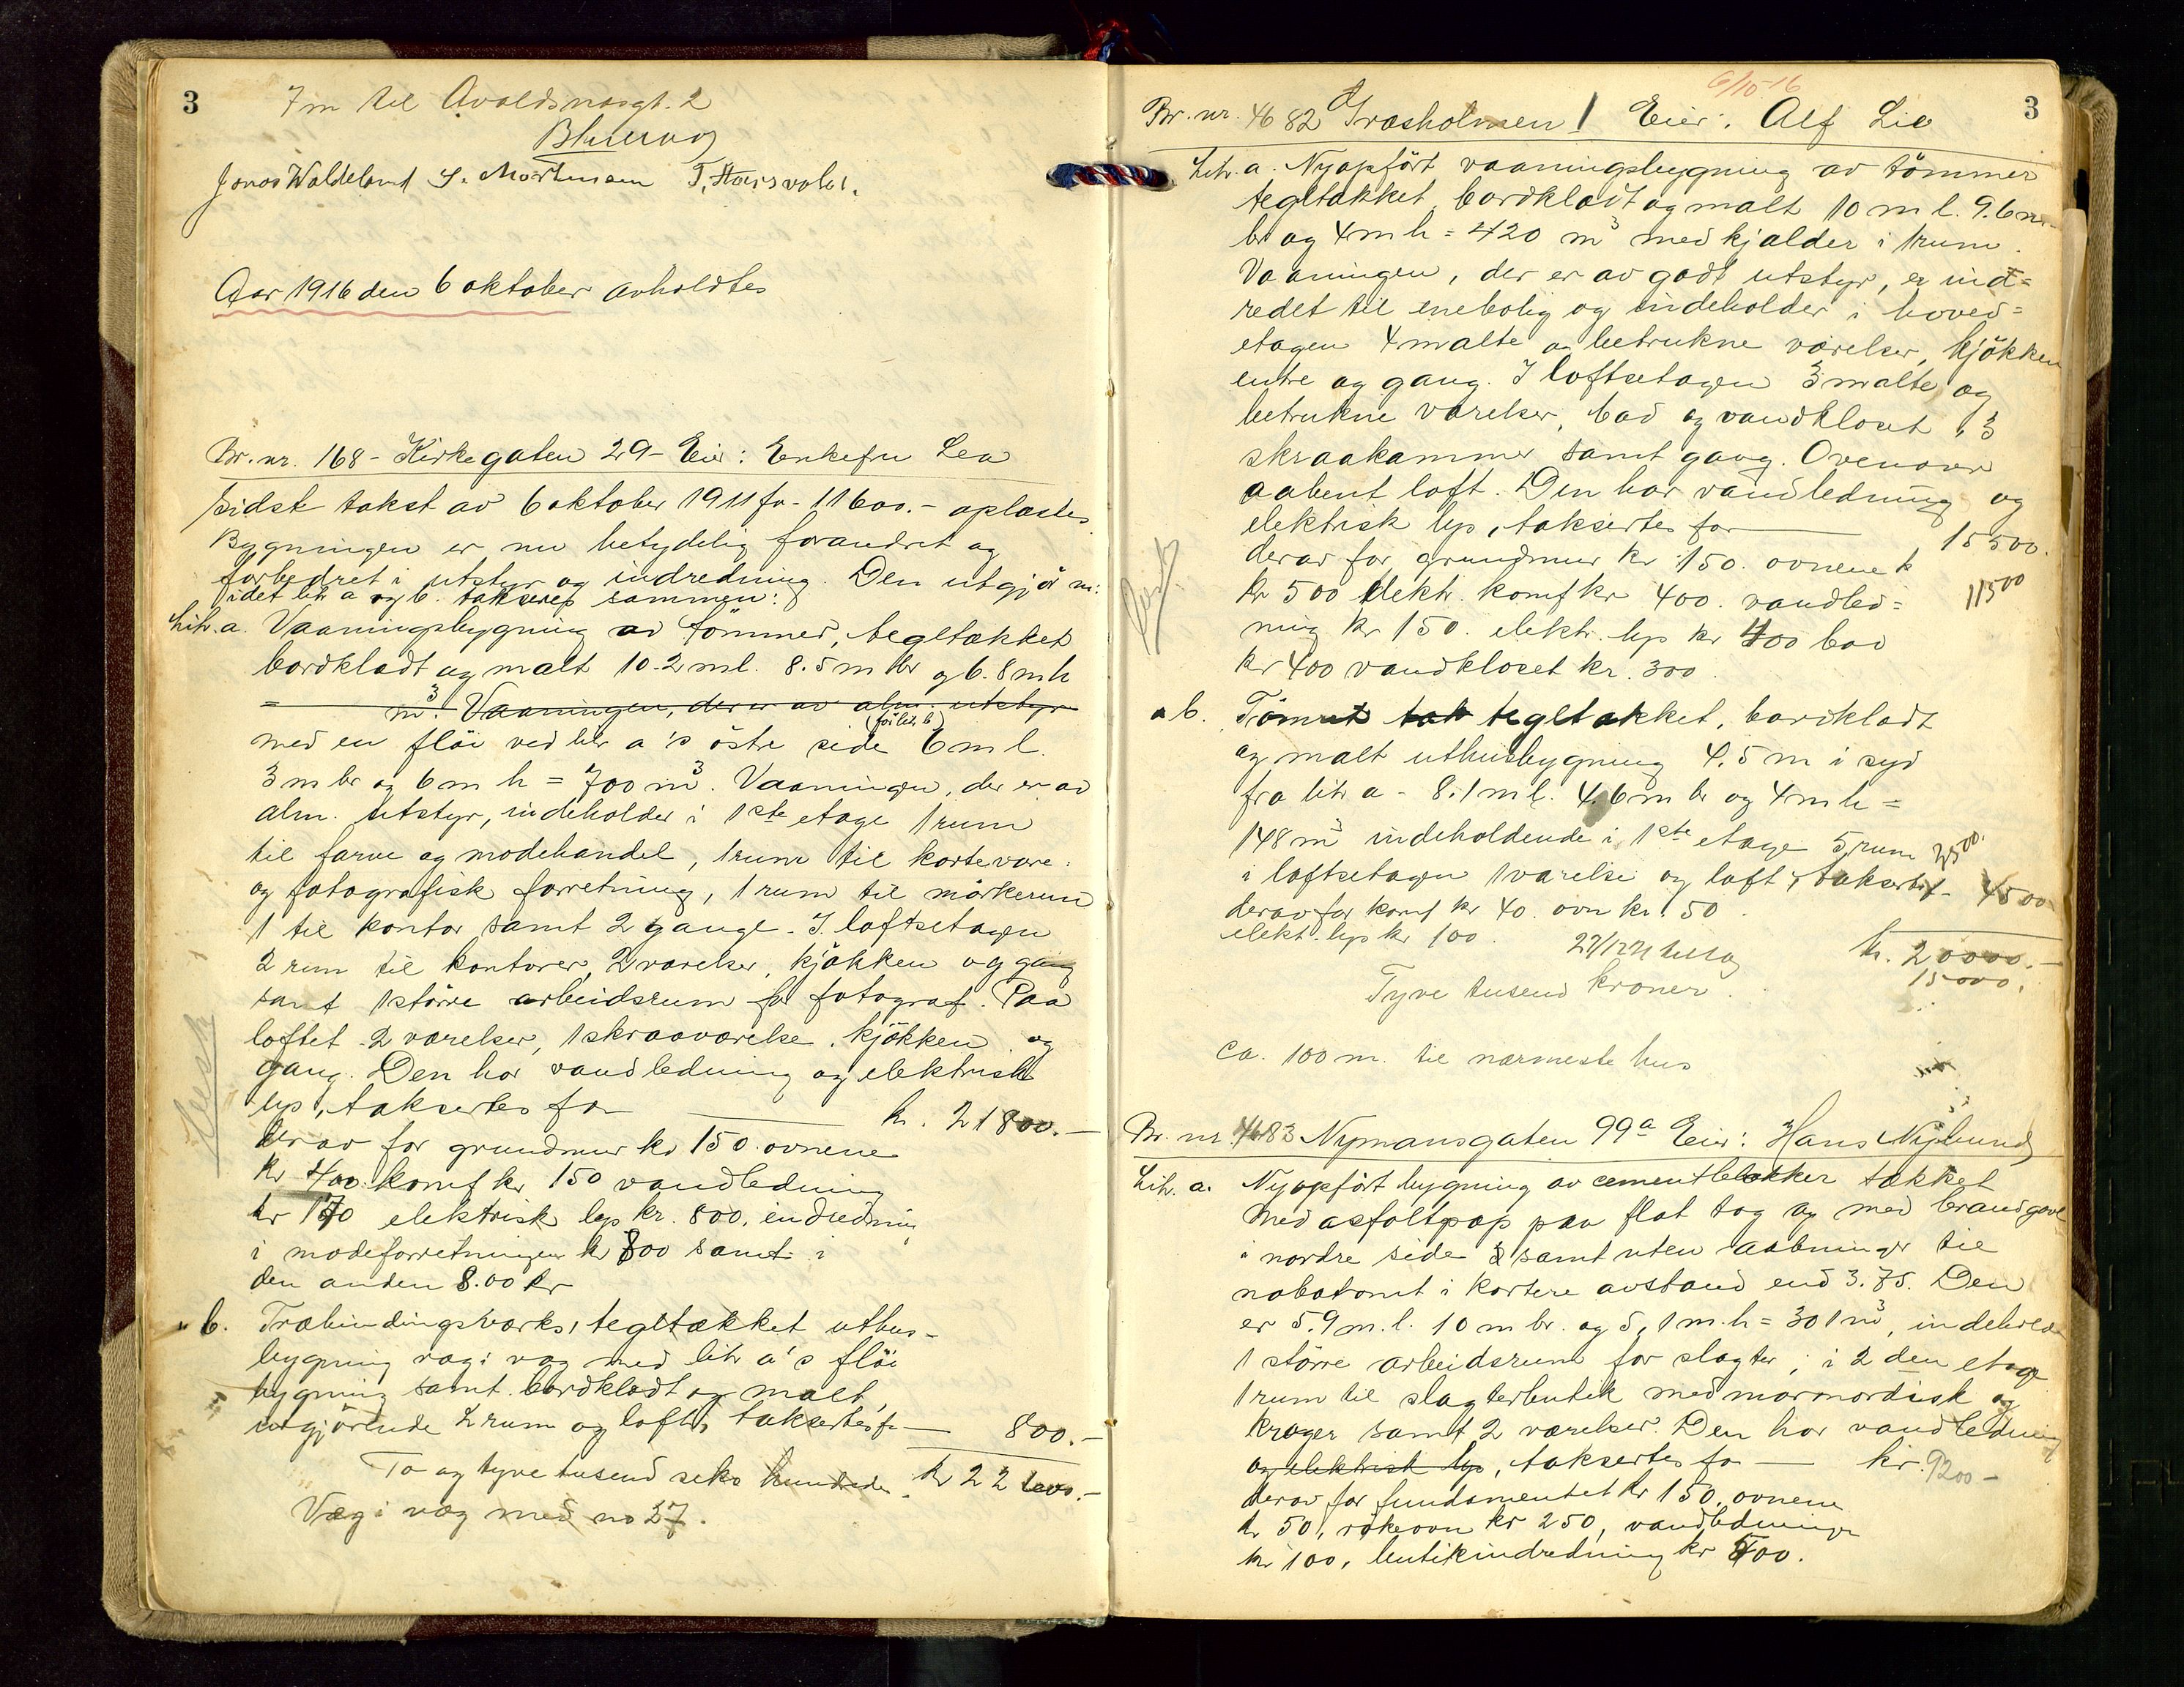 3
7 m til Avaldsnesgt. 2
Jonas Waldeland S. Mortensen
Aar 1916 den 6 oktober avholdtes
Br. nr. 168 - Kirkegaten 29 - Eier: Enkefru Lea
sidste takst av 6 oktober 1911 for 11600.- oplæstes.
Bygningen er nu betydelig forandret og
forbedret i utstyr og indredning. Den utgjör nu:
idet litr a og b. takseres sammen:
Litr. a. Vaaningsbygning av tömmer, tegltækket
bordklædt og malt 10.2 m l. 8.5 m br og 6.8 m h
= m³. Vaaningen, der er av alm. utstyr
med en flöi ved litr a's östre side (för lit. b) 6 m l.
3 m br og 6 m h = 700 m³. Vaaningen, der er av
alm. utstyr, indeholder i 1ste etage 1 rum
til farve og modehandel, 1 rum til kortevare-
og fotografisk forretning, 1 rum til mörkerum
1 til kontor samt 2 gange. I loftsetagen
2 rum til kontorer, 2 værelser, kjökken og gang
samt 1 större arbeidsrum for fotograf. Paa
loftet 2 værelser, 1 skraaværelse, kjökken og
gang. Den har vandledning og elektrisk
lys, taksertes for kr. 21800.-
derav for grundmur kr 150 ovnene
kr 400 komf kr 150 vandledning
kr 170 elektrisk lys kr. 800, indredning
i modeforretningen kr 800 samt i
den anden 800 kr
" b. Træbindingsværks, tegltækket uthus-
bygning væg i væg med litr a's flöi
bygning samt bordklædt og malt,
utgjörende 2 rum og loft, taksertes for 800.-
To og tyve tusend seks hundrede kr 22600.-
Væg i væg med no 27.
3
6/10-16
Br. nr. 4682 Græsholmen 1 Eier: Alf Lie
Litr. a. Nyopfört vaaningsbygning av tömmer
tegltækket, bordklædt og malt 10 m l. 9.6 m
br og 4 m h = 420 m³ med kjælder i 1 rum.
Vaaningen, der er av godt utstyr, er ind=
redet til enebolig og indeholder i hoved=
etagen 4 malte og betrukne værelser, kjökken
entre og gang. I loftsetagen 3 malte og
betrukne værelser, bad og vandkloset, 3
skraakammer samt gang. Ovenover
aabent loft. Den har vandledning og
elektrisk lys, taksertes for 15500.
derav for grundmur kr 150. ovnene
kr 500 elektr. komf kr 400. vandled= 11500
ning kr 150. elektr. lys kr 400 bad
kr 400 vandkloset kr. 300.
" b. Tömret tak tegltækket, bordklædt
og malt uthusbygning 4.5 m i syd
fra litr a - 8.1 m l. 4.6 m br og 4 m h =
148 m³ indeholdende i 1ste etage 5 rum 3500.
i loftsetagen 1 værelse og loft, taksertes f. 4500
derav for komf kr 40. ovn kr. 50.
elektr. lys kr 100. 27/12 21 kr. 20000.-
Tyve tusend kroner. 15000.
ca. 100 m. til nærmeste hus
Br. nr. 4683 Nymansgaten 99a Eier: Hans Nylund
Litr. a. Nyopfört bygning av cementblokker tækket
med asfaltpap paa flat tag og med brandgavl
i nordre side samt uten aabninger til
nabotomt i kortere avstand end 3.75. Den
er 5.9 m. l. 10 m br. og 5,1 m. h = 301 m³, indeholder
1 större arbeidsrum for slagter, i 2den etage
1 rum til slagterbutik med marmordisk og
kroger samt 2 værelser. Den har vandledning
og elektrisk lys, taksertes for kr. 9200-
derav for fundamentet kr 150, ovnene
kr 50, rökeovn kr 250, vandledningen
kr 100, butikindredning kr 500.